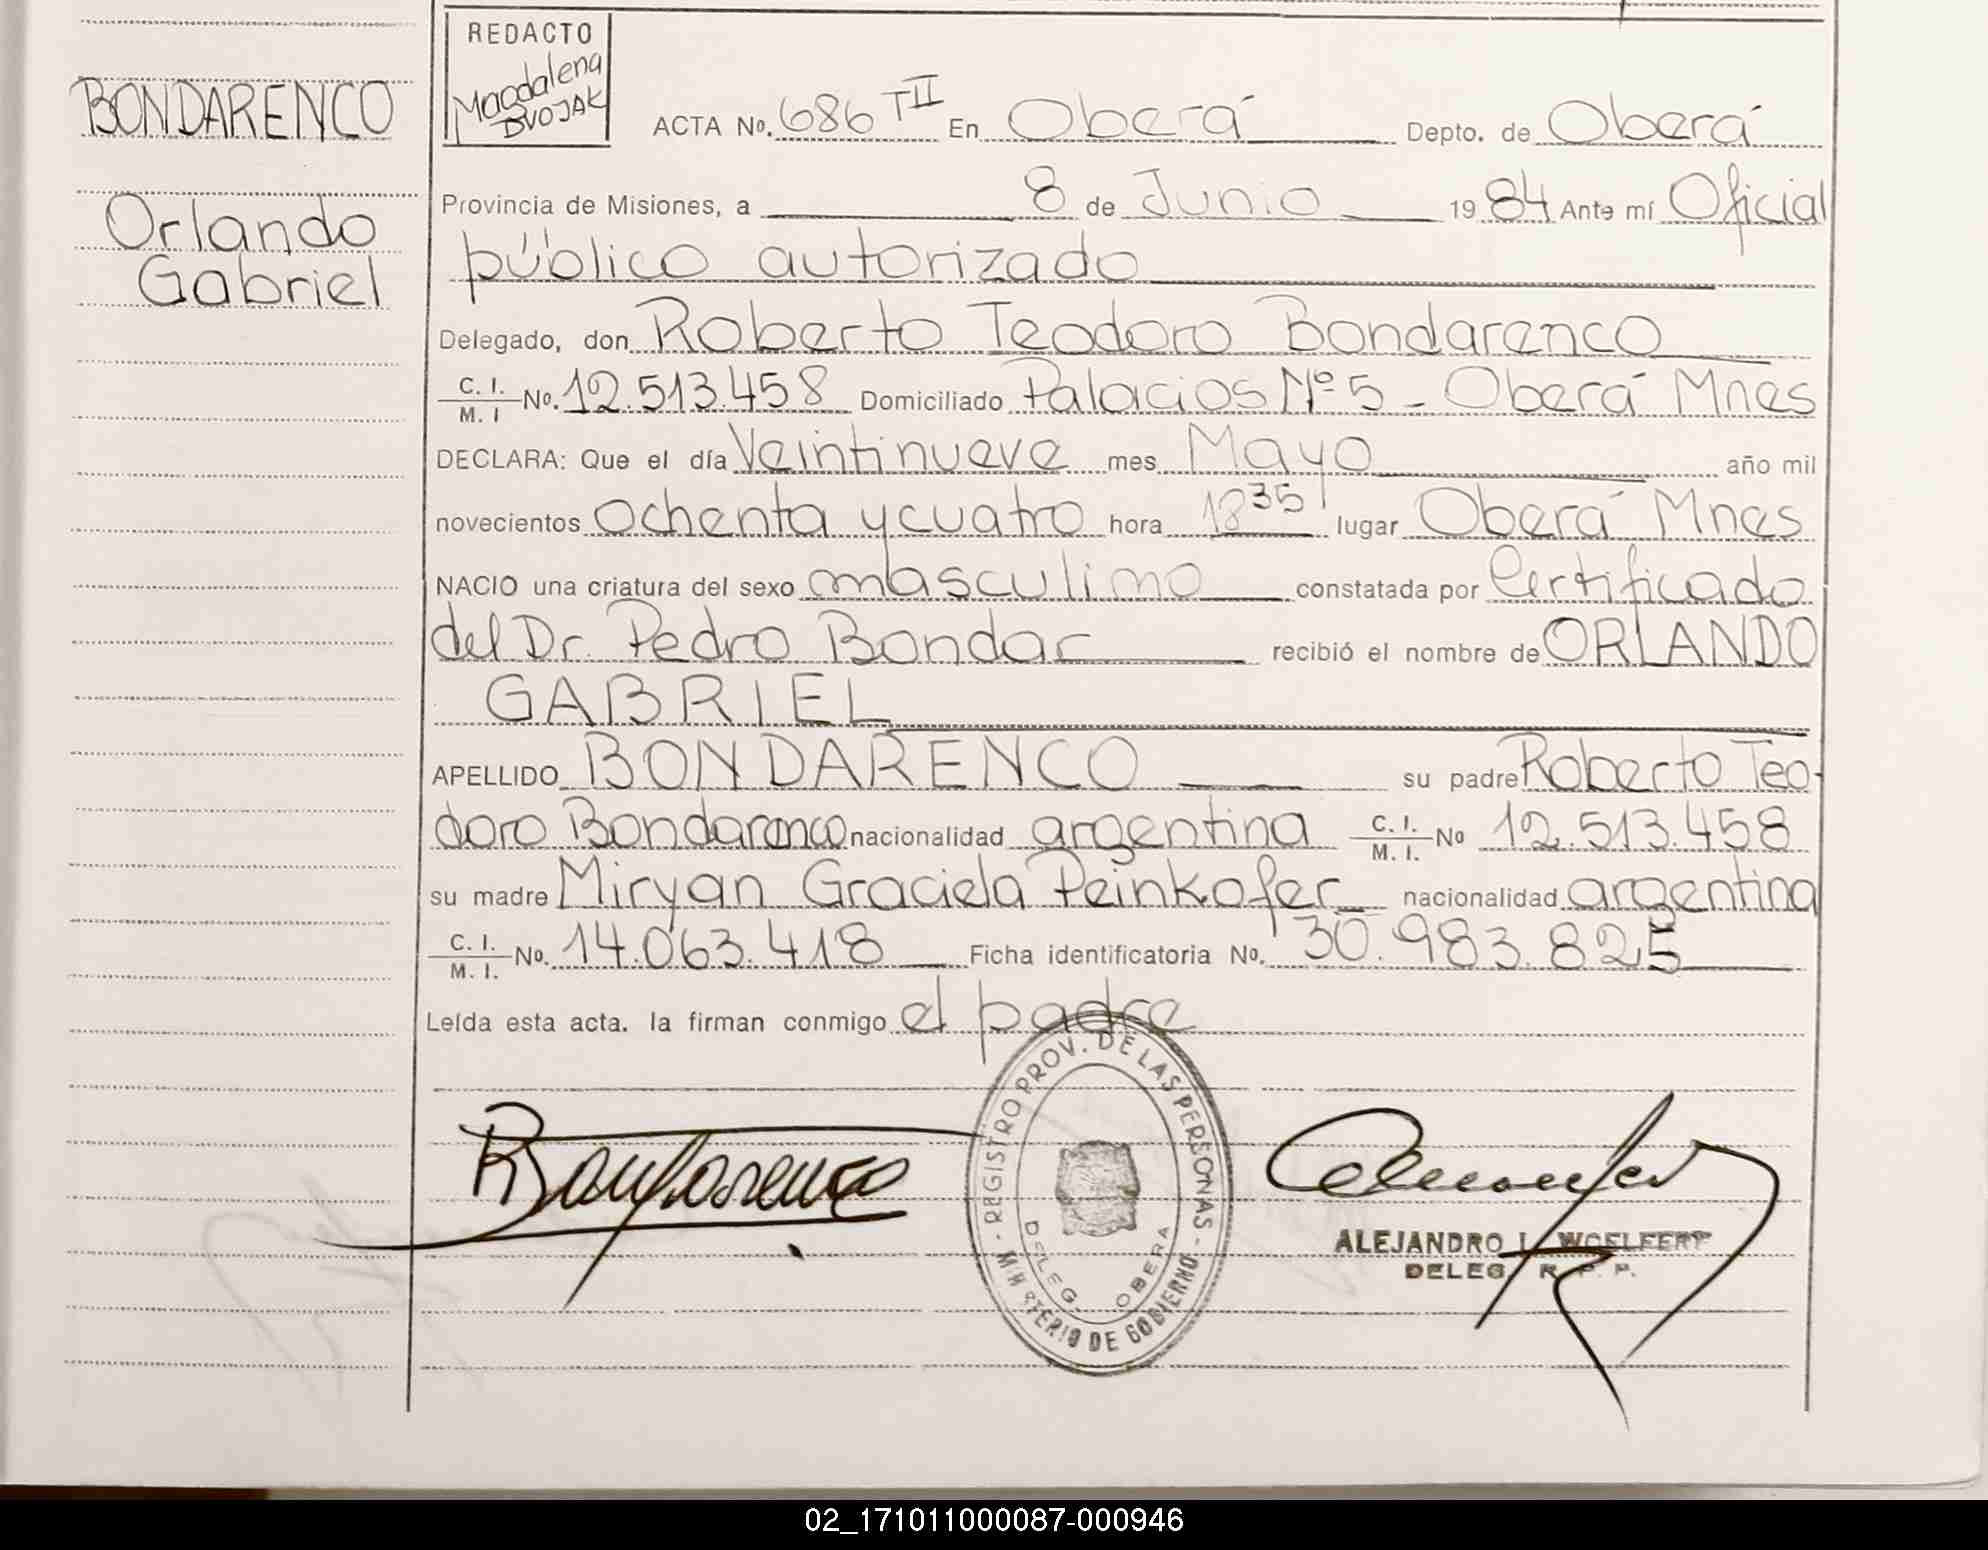 BONDARENCO
Orlando
Gabriel
REDACTO
Magdalena
DVOJAK
ACTA No. 686 TII En Oberá Depto. de Oberá
Provincia de Misiones, a 8 de Junio 1984 Ante mí Oficial
público autorizado
Delegado, don Roberto Teodoro Bondarenco
C. I. / M. I No. 12.513.458 Domiciliado Palacios Nº 5 - Oberá Mnes
DECLARA: Que el día Veintinueve mes Mayo año mil
novecientos ochenta y cuatro hora 18 35 lugar Oberá Mnes
NACIO una criatura del sexo masculino constatada por Certificado
del Dr. Pedro Bondar recibió el nombre de ORLANDO
GABRIEL
APELLIDO BONDARENCO su padre Roberto Teo-
doro Bondarenco nacionalidad argentina C. I. / M. I. No 12.513.458
su madre Miryan Graciela Peinkofer nacionalidad argentina
C. I. / M. I. No. 14.063.418 Ficha identificatoria No. 30.983.825
Leída esta acta. la firman conmigo el padre
RBondarenco
REGISTRO PROV. DE LAS PERSONAS - MINISTERIO DE GOBIERNO -
DELEG. OBERA
ALEJANDRO I. WOELFERT
DELEG. R. P. P.
02_171011000087-000946